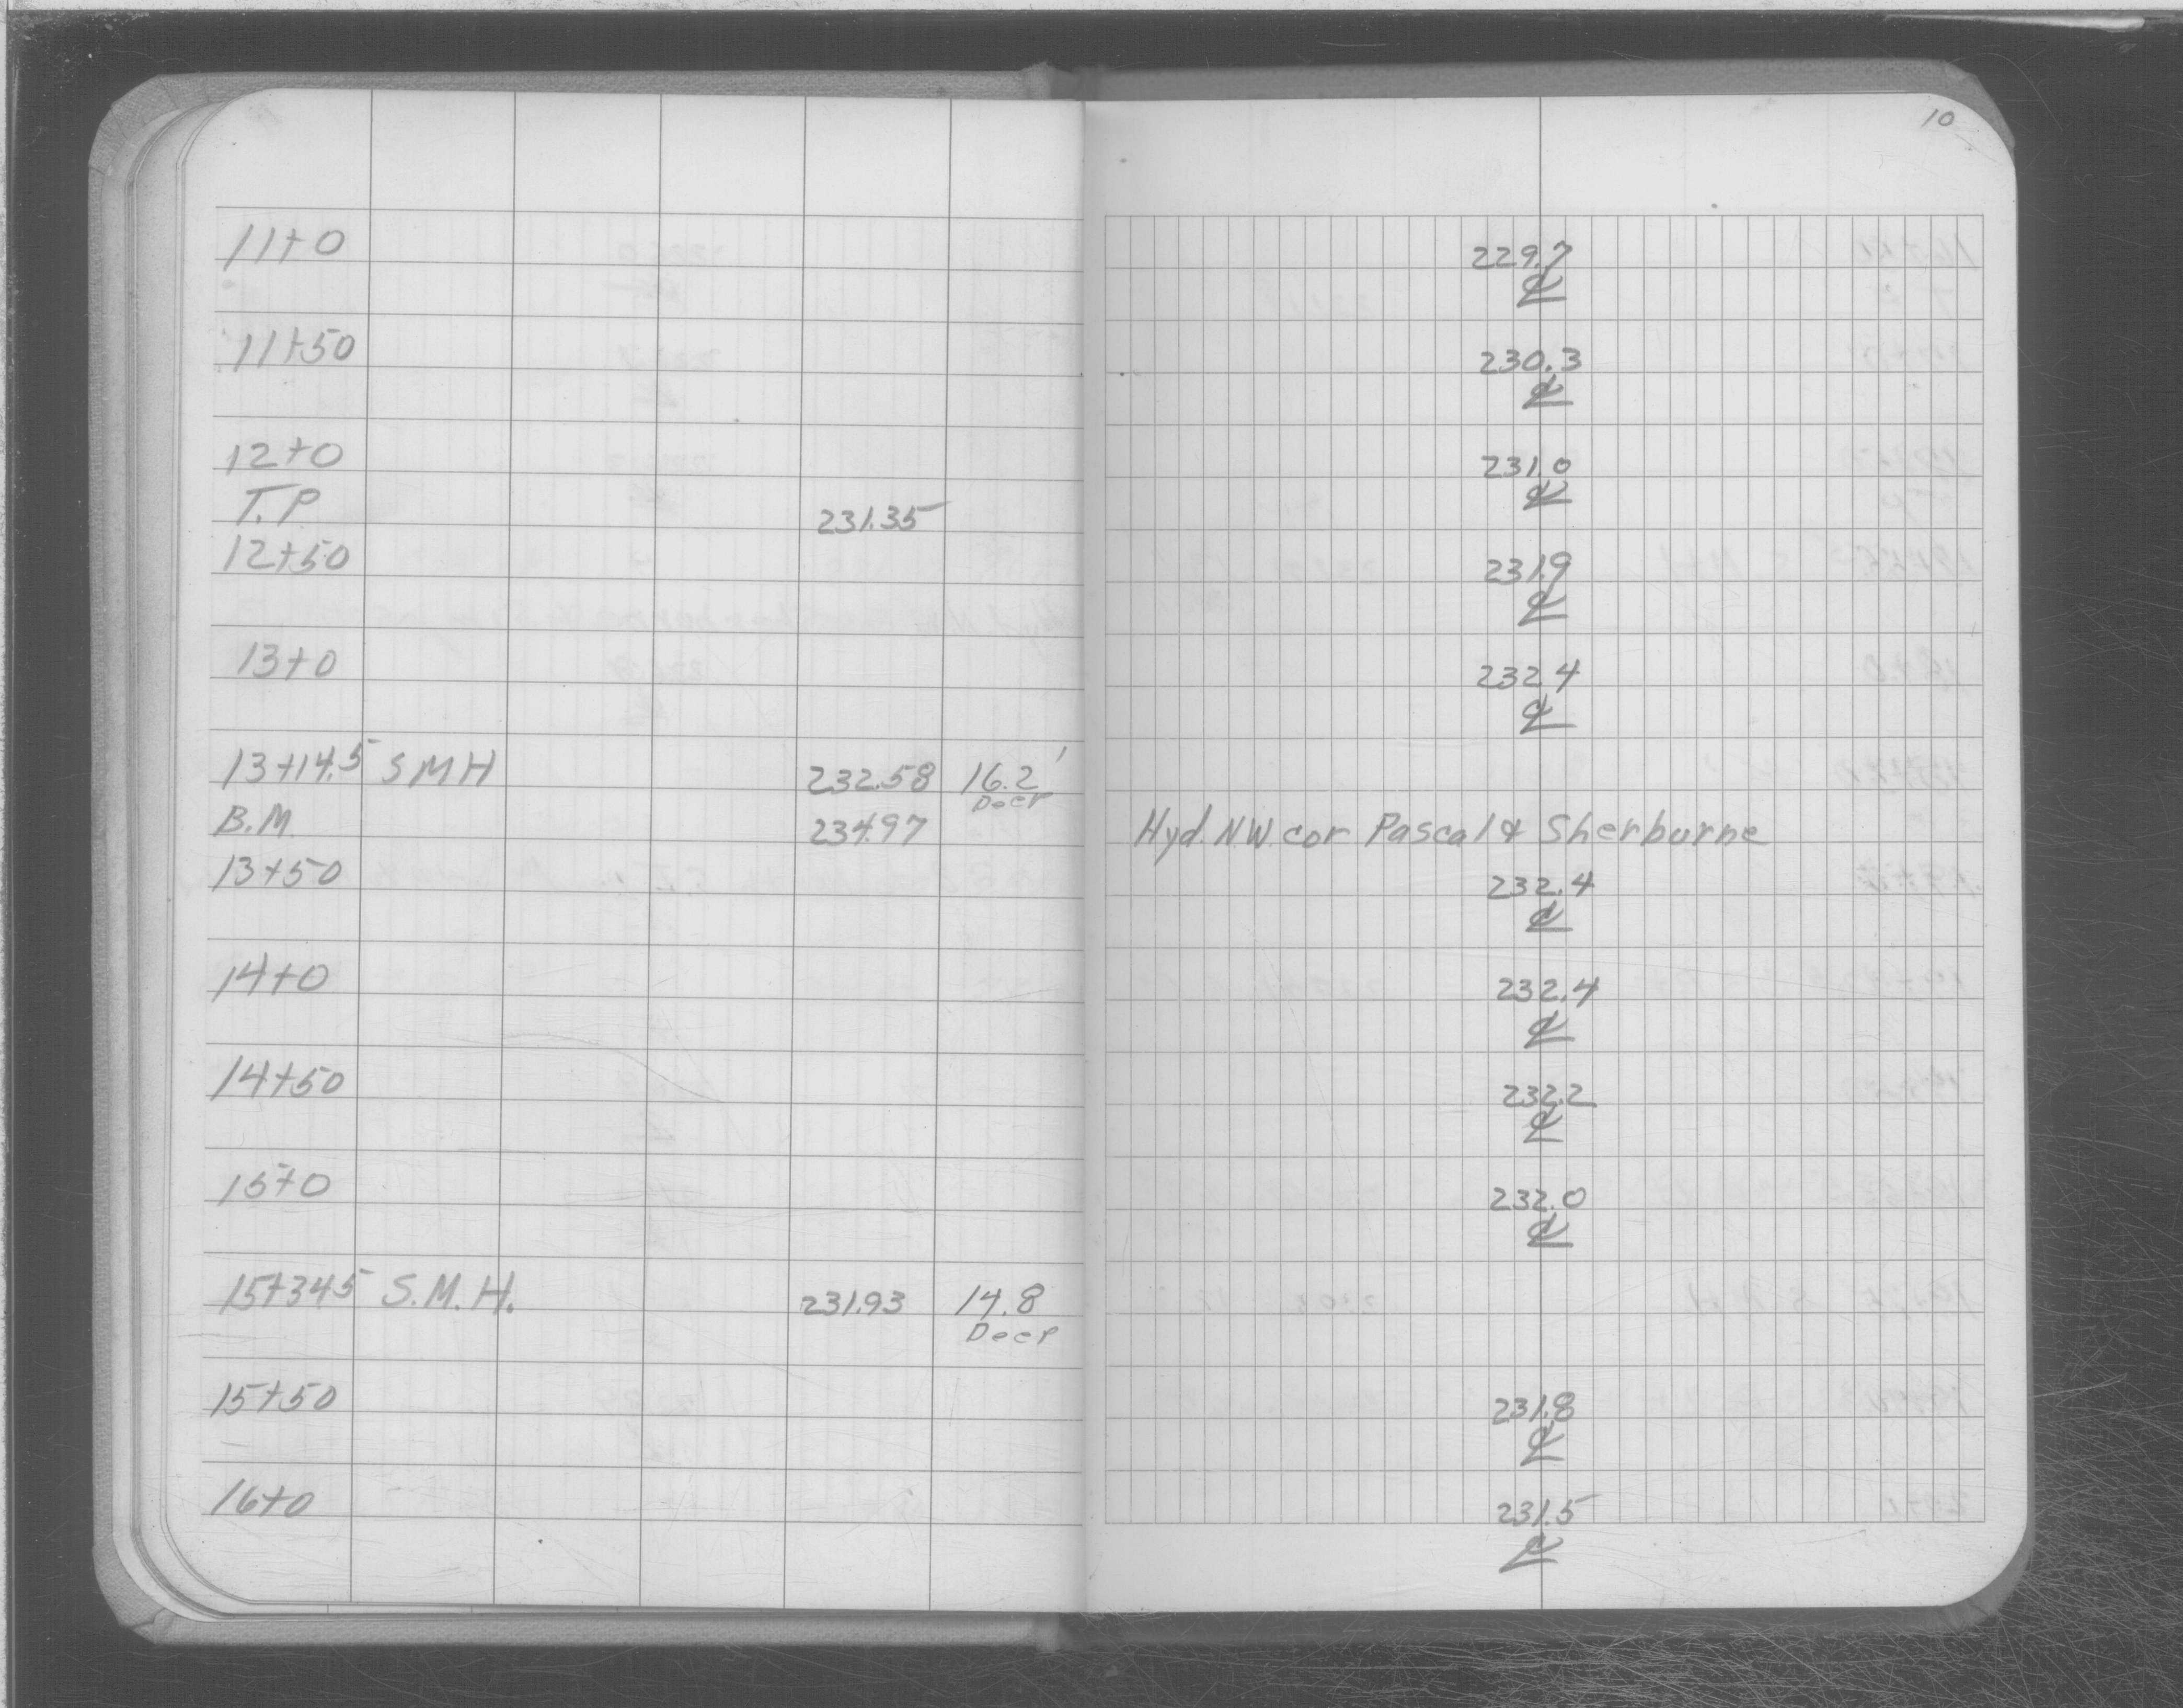 10
11+0 229.7
℄
11+50 230.3
℄
12+0 231.0
℄
T.P 231.35
12+50 231.9
℄
13+0 232.4
℄
13+14.5 SMH 232.58 16.2'
Deep
B.M. 234.97 Hyd. N.W. cor Pascal & Sherburne
13+50 232.4
℄
14+0 232.4
℄
14+50 232.2
℄
15+0 232.0
℄
15+34.5 S.M.H. 231.93 14.8
Deep
15+50 231.8
℄
16+0 231.5
℄